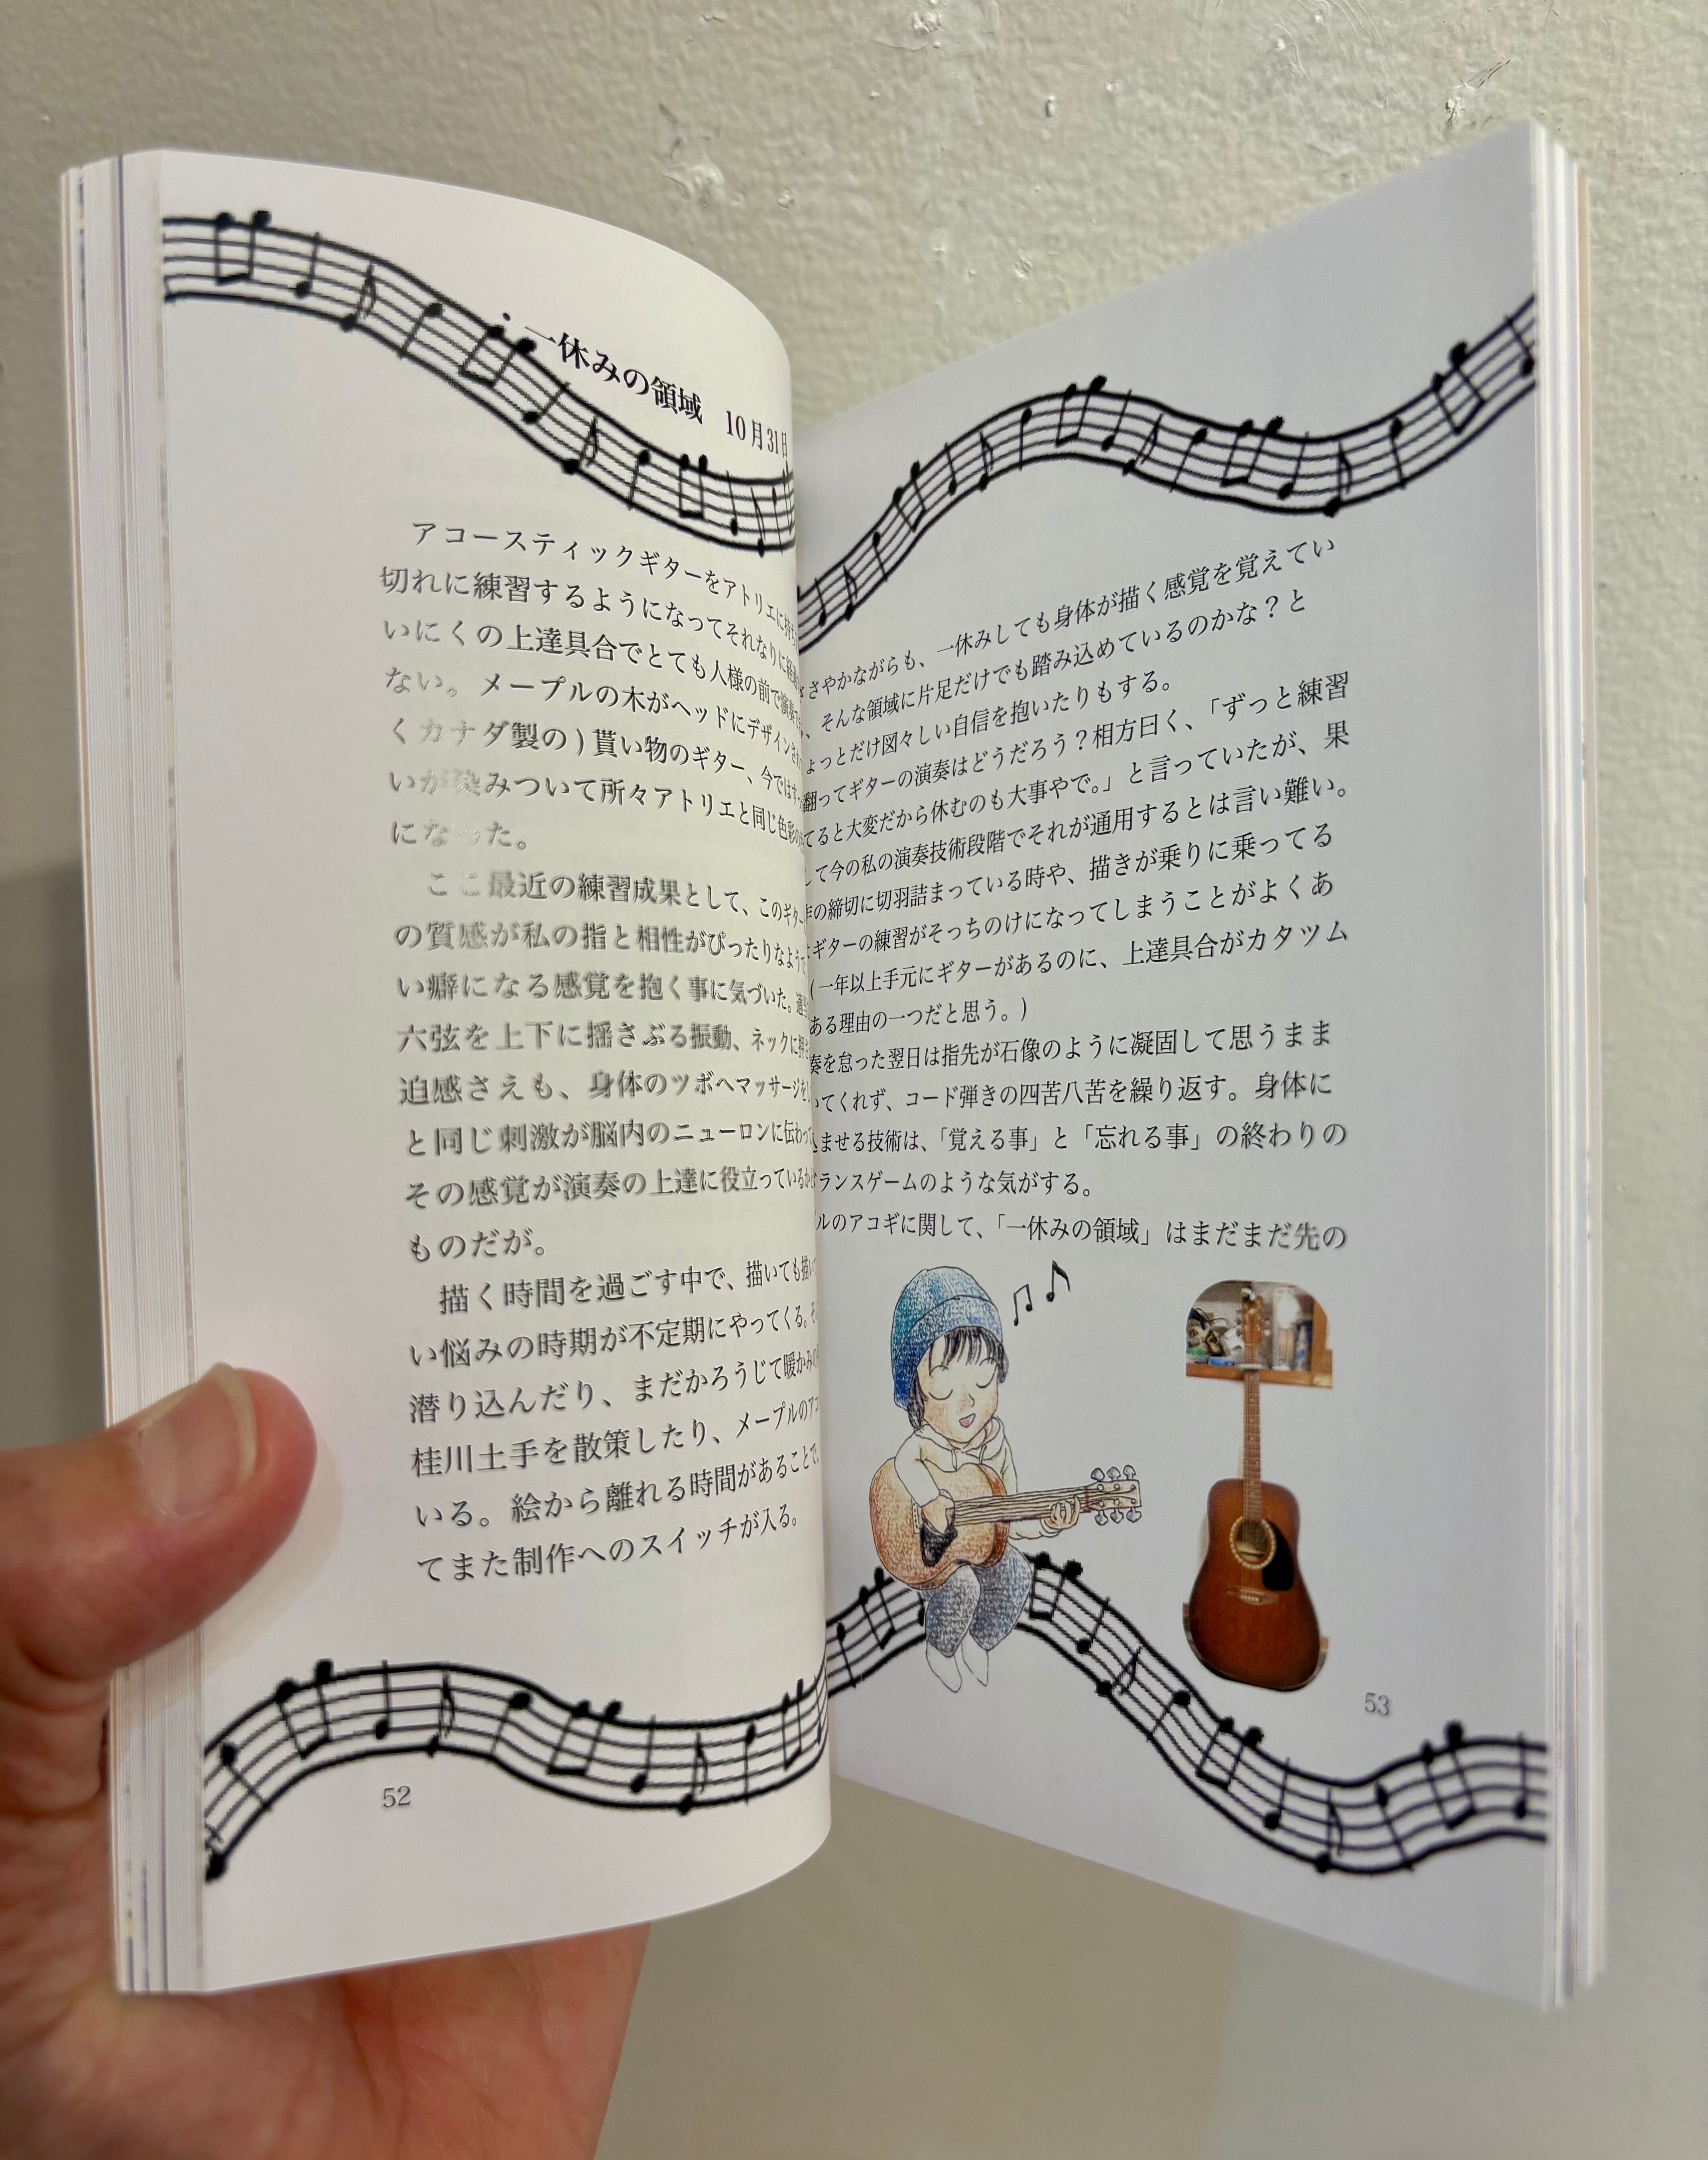 ・一休みの領域 10月31日
アコースティックギターをアトリエに持ち
切れに練習するようになってそれなりに経
いにくの上達具合でとても人様の前で演奏で
ない。メープルの木がヘッドにデザインさ
くカナダ製の)貰い物のギター、今ではす
いが染みついて所々アトリエと同じ色彩の
になった。
ここ最近の練習成果として、このギター
の質感が私の指と相性がぴったりなようで
い癖になる感覚を抱く事に気づいた。適当
六弦を上下に揺さぶる振動、ネックに押さ
迫感さえも、身体のツボへマッサージをし
と同じ刺激が脳内のニューロンに伝わって
その感覚が演奏の上達に役立っているかは
ものだが。
描く時間を過ごす中で、描いても描い
い悩みの時期が不定期にやってくる。そ
潜り込んだり、まだかろうじて暖かみの
桂川土手を散策したり、メープルのア
いる。絵から離れる時間があることで、
てまた制作へのスイッチが入る。
52
ささやかながらも、一休みしても身体が描く感覚を覚えてい
、そんな領域に片足だけでも踏み込めているのかな？と
ょっとだけ図々しい自信を抱いたりもする。
翻ってギターの演奏はどうだろう？相方曰く、「ずっと練習
てると大変だから休むのも大事やで。」と言っていたが、果
して今の私の演奏技術段階でそれが通用するとは言い難い。
の締切に切羽詰まっている時や、描きが乗りに乗ってる
ギターの練習がそっちのけになってしまうことがよくあ
(一年以上手元にギターがあるのに、上達具合がカタツム
ある理由の一つだと思う。)
奏を怠った翌日は指先が石像のように凝固して思うまま
いてくれず、コード弾きの四苦八苦を繰り返す。身体に
ませる技術は、「覚える事」と「忘れる事」の終わりの
ランスゲームのような気がする。
ルのアコギに関して、「一休みの領域」はまだまだ先の
53